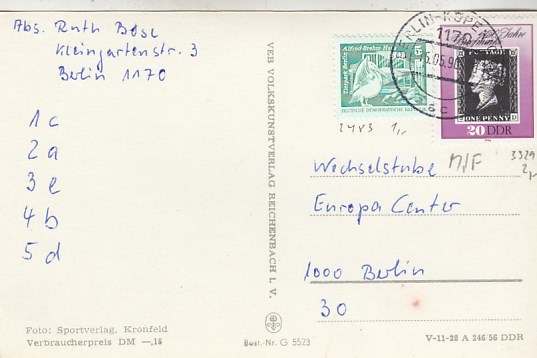 Abs. Ruth Bose
Kleingartenstr. 3
Berlin 1170
1 c
2 a
3 e
4 b
5 d
Foto: Sportverlag, Kronfeld
Verbraucherpreis DM —,15
VEB VOLKSKUNSTVERLAG REICHENBACH I. V.
Best.-Nr. G 5523
Alfred-Brehm-Haus
Tierpark Berlin
5
DEUTSCHE DEMOKRATISCHE REPUBLIK
BERLIN-KÖPENICK
1170
05.90
Jahre
POSTAGE
ONE PENNY
20 DDR
2483 1,-
M/F
3329
2,-
Wechselstube
Europa Center
1000 Berlin
30
V-11-28 A 246/56 DDR